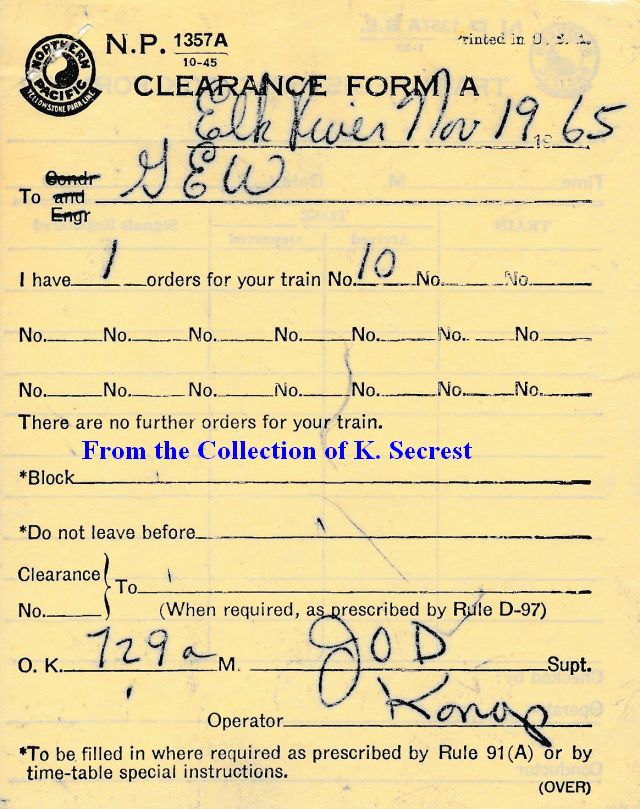 NORTHERN PACIFIC
YELLOWSTONE PARK LINE
N.P. 1357A
10-45
Printed in U. S. A.
CLEARANCE FORM A
Elk River Nov 19 1965
Condr
To and GEW
Engr
I have 1 orders for your train No. 10 No. No.
No. No. No. No. No. No. No.
No. No. No. No. No. No. No.
There are no further orders for your train.
From the Collection of K. Secrest
*Block
*Do not leave before
Clearance
To
No. (When required, as prescribed by Rule D-97)
O. K. 729a M. JOD Supt.
Operator Konop
*To be filled in where required as prescribed by Rule 91(A) or by
time-table special instructions.
(OVER)